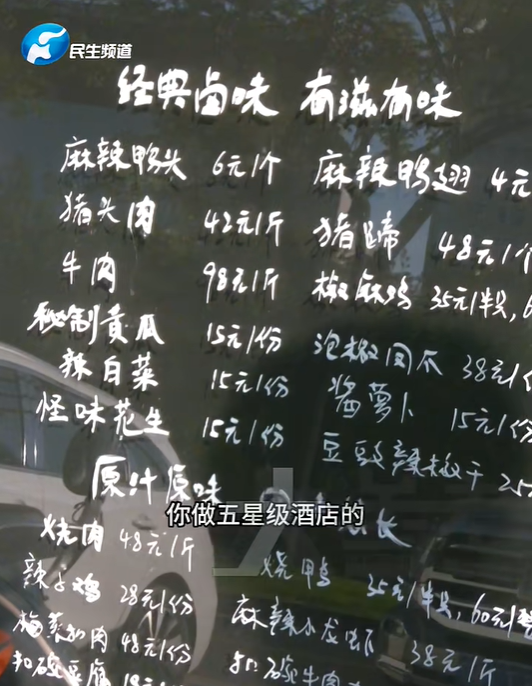 民生频道
经典卤味 有滋有味
麻辣鸭头 6元1个 麻辣鸭翅 4元
猪头肉 42元1斤 猪蹄 48元1个
牛肉 98元1斤 椒麻鸡 35元1半只,6
秘制黄瓜 15元1份 泡椒凤爪 38元1份
辣白菜 15元1份 酱萝卜 15元1份
怪味花生 15元1份 豆豉辣椒干 25
原汁原味
你做五星级酒店的
烧肉 48元1斤 烧鸭 35元1半只,60元1整
辣子鸡 28元1份 麻辣小龙虾 38元1斤
梅菜扣肉 48元1份
扣碗豆腐 扣碗牛肉